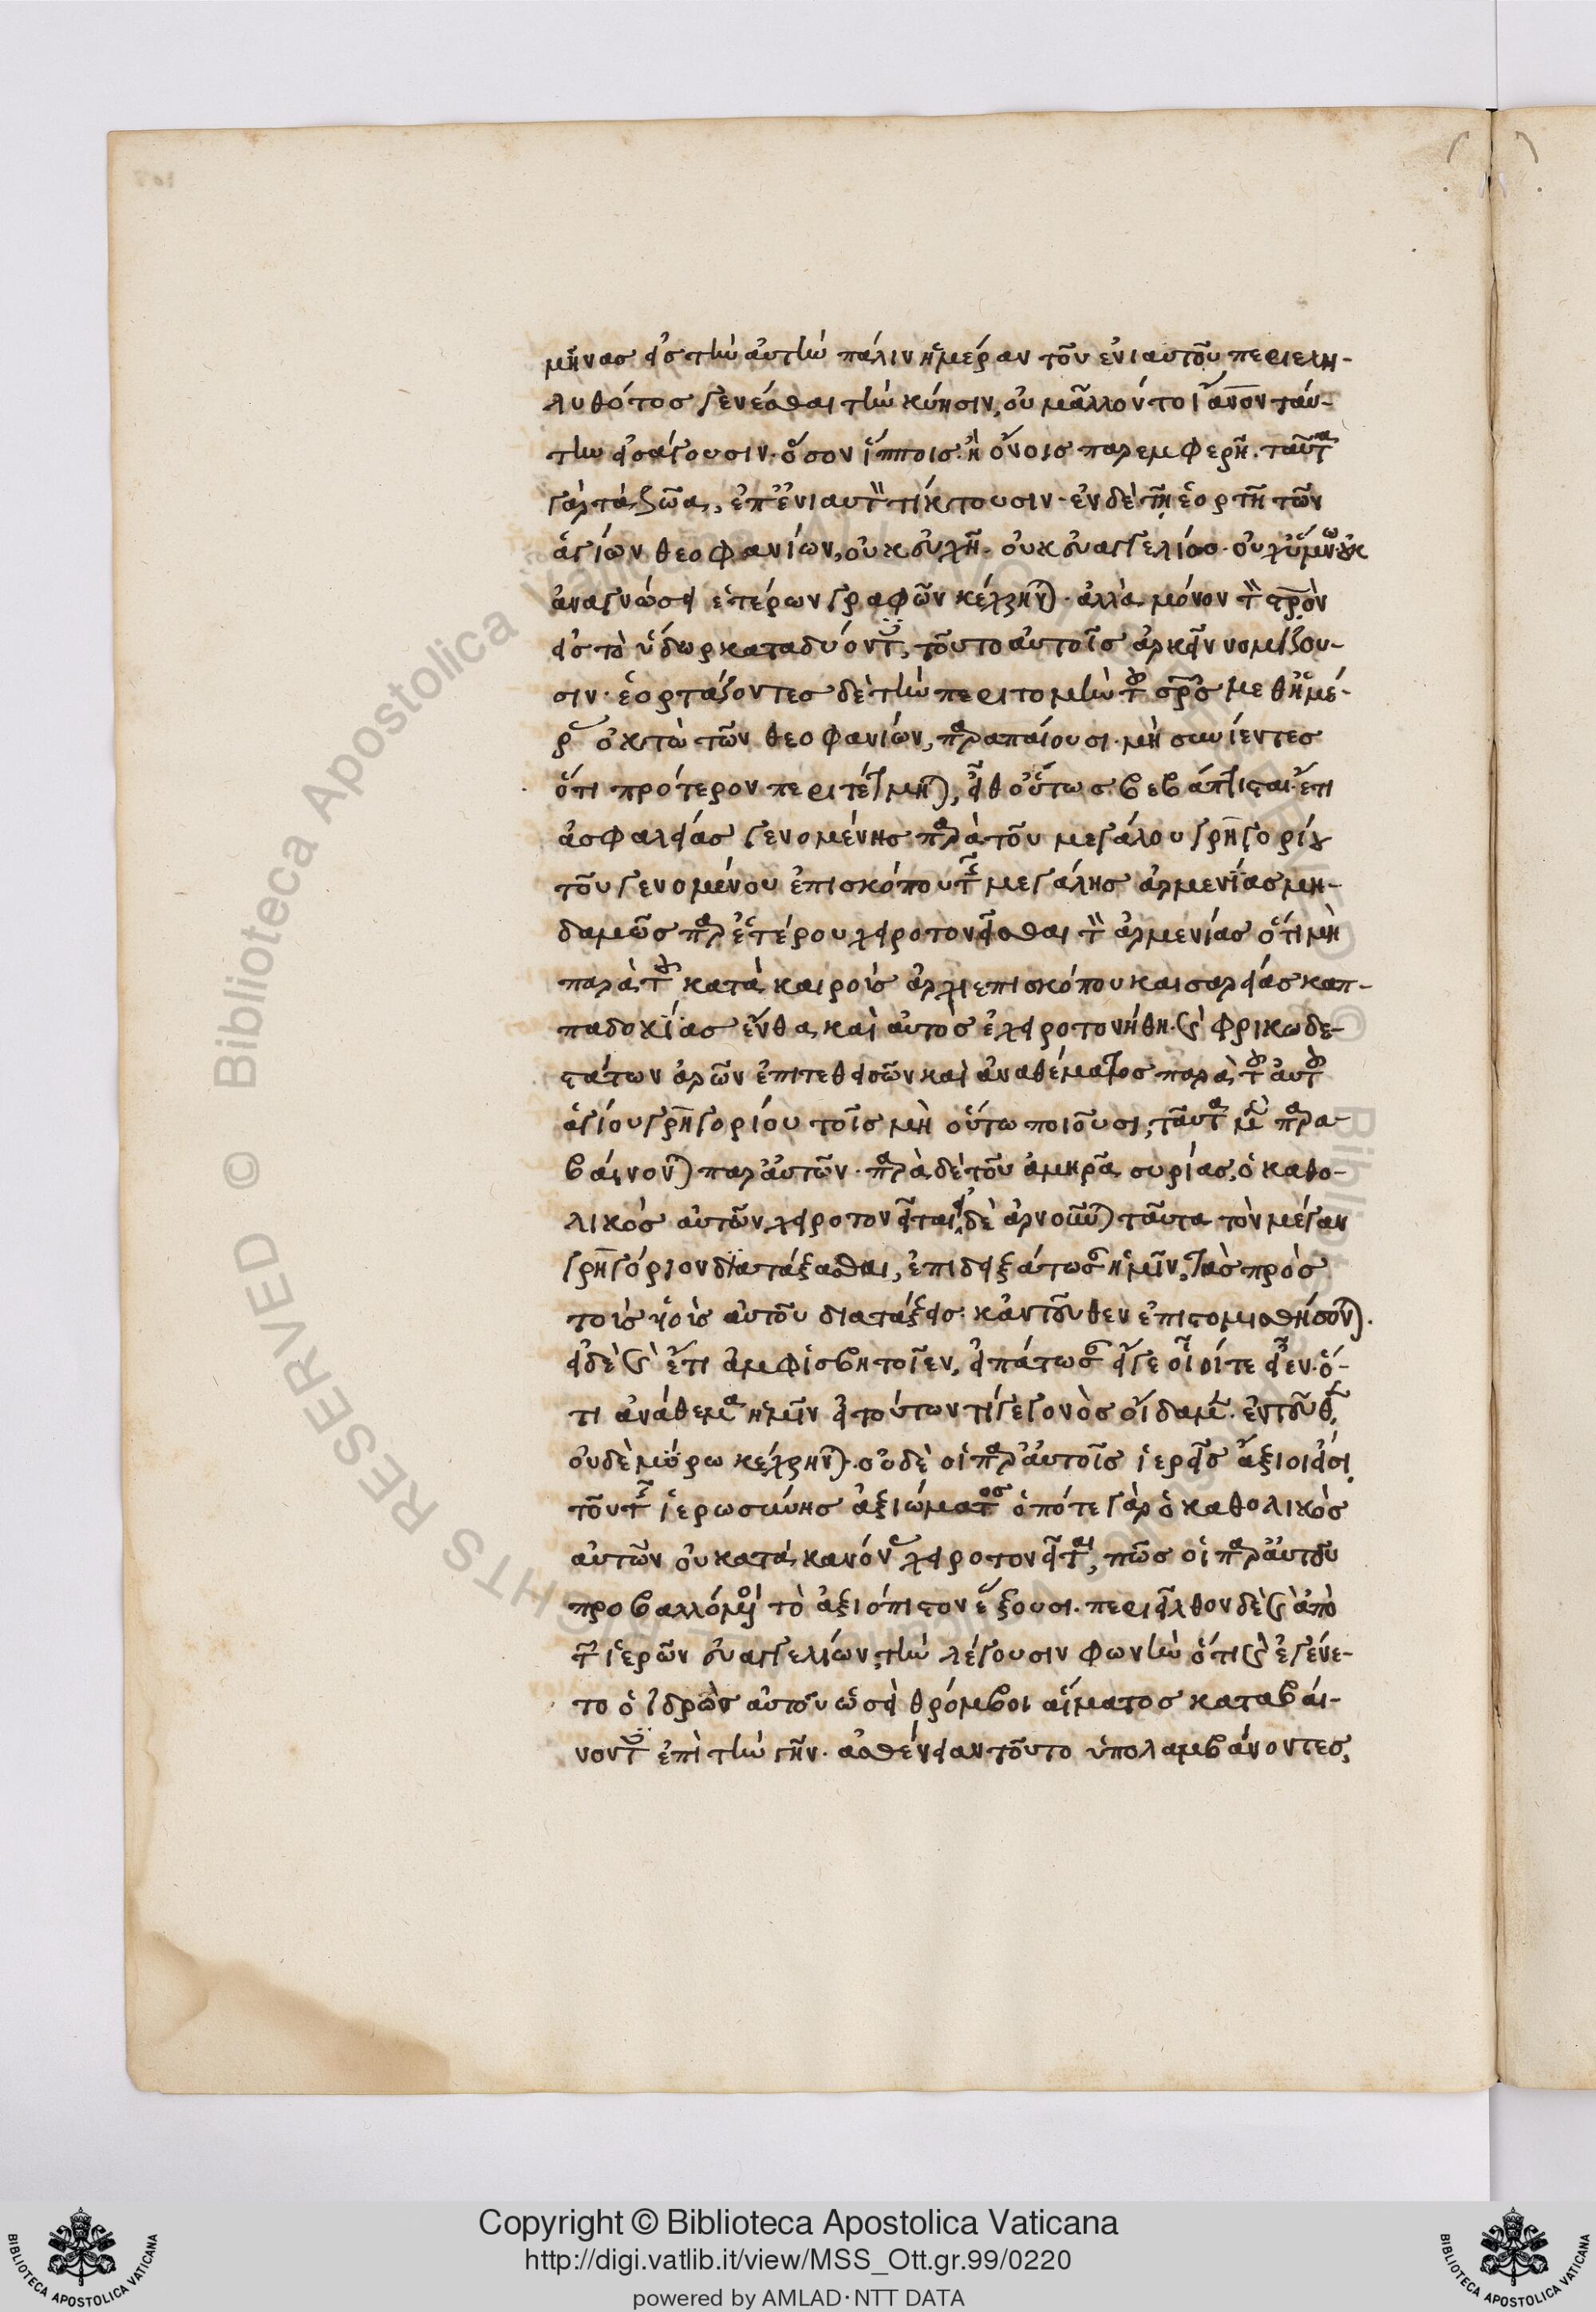 μῆνας εἰς τὴν αὐτὴν πάλιν ἡμέραν τοῦ ἐνιαυτοῦ περιελη-
λυθότος γενέσθαι τὴν κύησιν, οὐ μᾶλλόν τοι ἄνον ταύ-
την εἰσάγουσιν. ὅσον ἵπποις ἢ ὄνοις παρεμφερῆ. ταῦτα
γὰρ τὰ ζῶα, ἐπ' ἐνιαυτὸν τίκτουσιν. ἐν δὲ τῆ ἑορτῆ τῶν
ἁγίων θεοφανίων, οὐκ εὐχῆ. οὐκ εὐαγγελίοις. οὐχ ὕμνων οὐκ
ἀναγνώσει ἑτέρων γραφῶν κέχρηνται. ἀλλὰ μόνον τὸν στρὸν
εἰς τὸ ὕδωρ καταδύοντες, τοῦτο αὐτοῖς ἀρκεῖν νομίζου-
σιν. ἑορτάζοντες δὲ τὴν περιτομὴν τοῦ σρς μεθ' ἡμέ-
ρας ὀκτὼ τῶν θεοφανίων, παραπαίουσι. μὴ συνίεντες
ὅτι πρότερον περιτέτμηται, εἶθ' οὕτως βεβάπτισται. ἔτι
ἀσφαλείας γενομένης παρὰ τοῦ μεγάλου γρηγορίου
τοῦ γενομένου ἐπισκόπου τῆς μεγάλης ἀρμενίας μη-
δαμῶς παρ' ἑτέρου χειροτονεῖσθαι τὸν ἀρμενίας ὅτι μὴ
παρὰ τοῦ κατὰ καιροὺς ἀρχιεπισκόπου καισαρείας καπ-
παδοκίας ἔνθα καὶ αὐτὸς ἐχειροτονήθη. καὶ φρικωδε-
στάτων ἀρῶν ἐπιτεθεισῶν καὶ ἀναθέματος παρὰ τοῦ αὐτοῦ
ἁγίου γρηγορίου τοῖς μὴ οὕτω ποιοῦσι, ταῦτα μὲν παρα-
βαίνονται παρ' αὐτῶν. παρὰ δὲ τοῦ ἀμηρᾶ συρίας, ὁ καθο-
λικὸς αὐτῶν χειροτονεῖται, εἰ δὲ ἀρνοῦνται ταῦτα τὸν μέγαν
γρηγόριον διατάξασθαι, ἐπιδειξάτωσαν ἡμῖν, τὰς πρὸς
τοὺς υἱοὺς αὐτοῦ διατάξεις. κἀντεῦθεν ἐπιστομισθήσονται.
εἰ δὲ καὶ ἔτι ἀμφισβητοῖεν, εἰπάτωσαν εἴγε οἷοί τε εἶεν. ὅ-
τι ἀνάθεμα ἡμῖν εἰ τούτων τι γεγονὸς οἴδαμεν. ἐντεῦθεν
οὐδὲ μύρω κέχρηνται. οὐδὲ οἱ παρ' αὐτοῖς ἱερεῖς ἄξιοί εἰσι
τοῦ τῆς ἱερωσύνης ἀξιώματος ὁπότε γὰρ ὁ καθολικὸς
αὐτῶν οὐ κατὰ κανόνας χειροτονεῖται, πῶς οἱ παρ' αὐτοῦ
προβαλλόμενοι τὸ ἀξιόπιστον ἕξουσι. περιεῖλθον δὲ καὶ ἀπὸ
τῶν ἱερῶν εὐαγγελίων, τὴν λέγουσιν φωνὴν ὅτι καὶ ἐγένε-
το ὁ ἱδρὼς αὐτοῦ ὡσεὶ θρόμβοι αἵματος καταβαί-
νοντες ἐπὶ τὴν γῆν. ἀσθένειαν τοῦτο ὑπολαμβάνοντες,
Copyright © Biblioteca Apostolica Vaticana
http://digi.vatlib.it/view/MSS_Ott.gr.99/0220
powered by AMLAD·NTT DATA